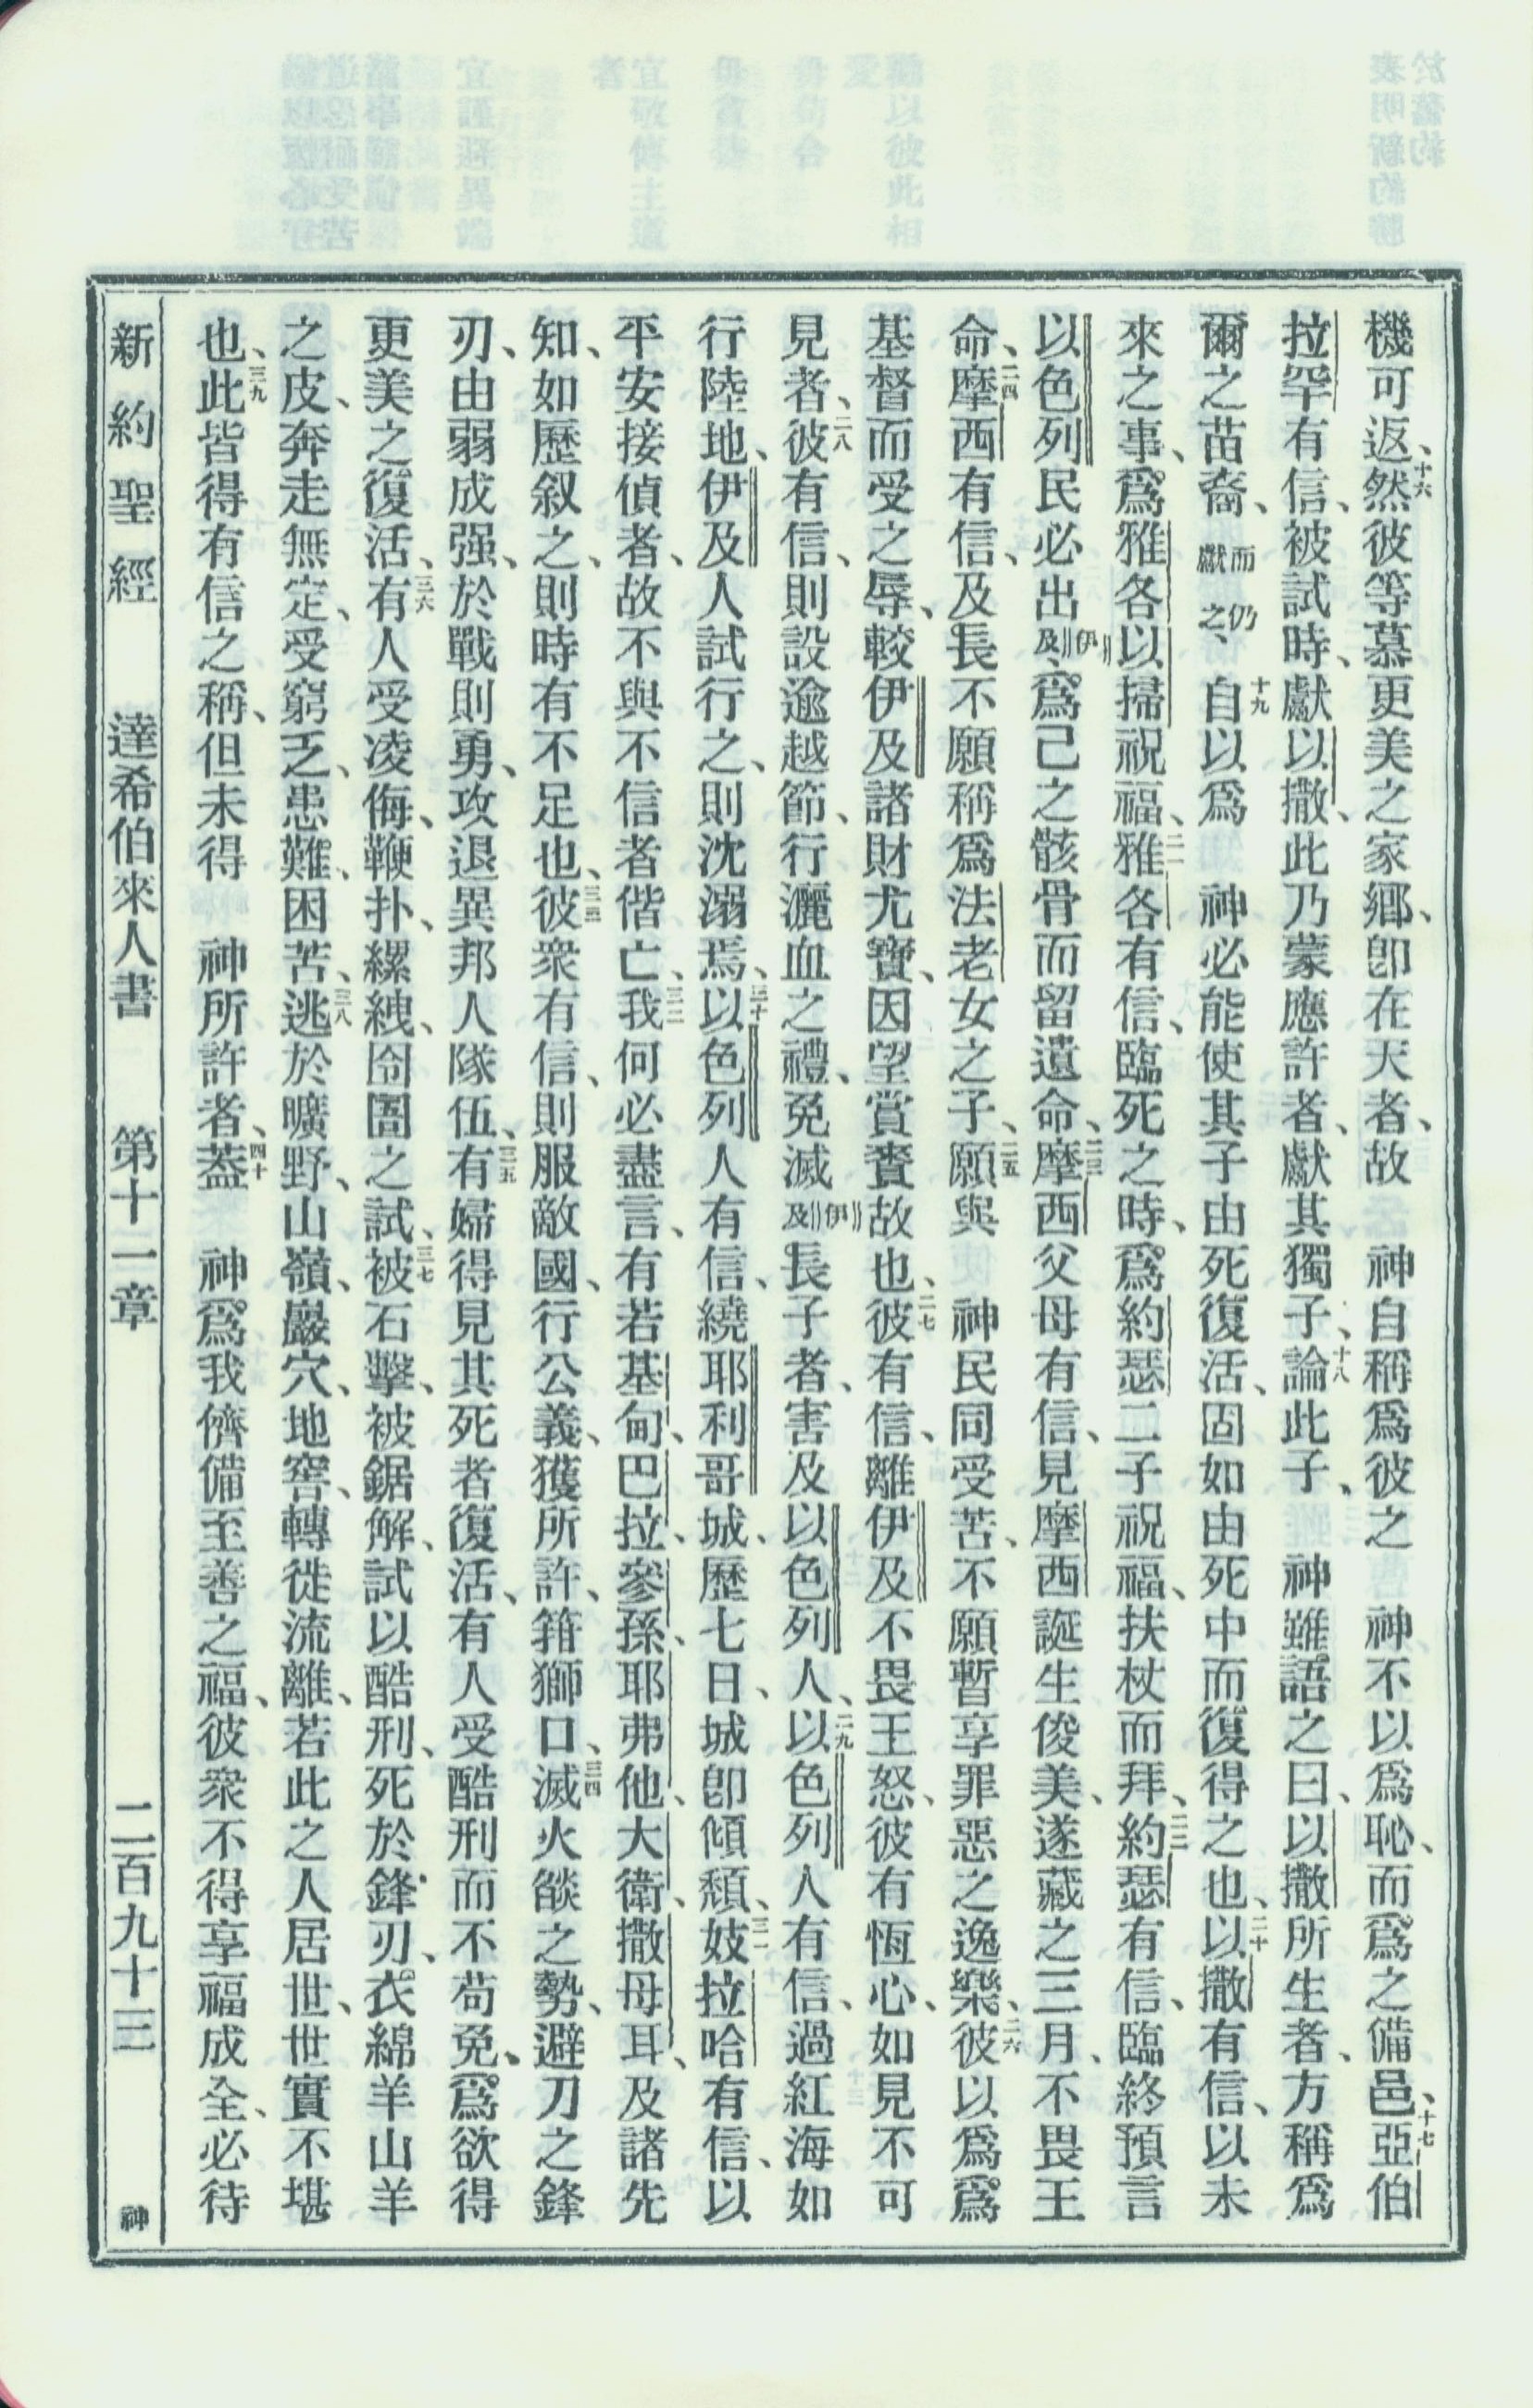 機可返、十六然彼等慕更美之家鄉、卽在天者、故　神自稱爲彼之　神不以爲恥、而爲之備邑、十七亞伯
拉罕有信、被試時、獻以撒、此乃蒙應許者、獻其獨子、十八論此子、　神雖語之曰、以撒所生者、方稱爲
爾之苗裔、而仍獻之、十九自以爲　神必能使其子由死復活、固如由死中而復得之也、二十以撒有信、以未
來之事、爲雅各以掃祝福、二一雅各有信、臨死之時、爲約瑟二子祝福、扶杖而拜、二二約瑟有信、臨終預言
以色列民必出伊及、爲己之骸骨而留遺命、二三摩西父母有信、見摩西誕生俊美、遂藏之三月、不畏王
命、二四摩西有信、及長不願稱爲法老女之子、二五願與　神民同受苦、不願暫享罪惡之逸樂、二六彼以爲爲
基督而受之辱、較伊及諸財尤寶、因望賞賚故也、二七彼有信、離伊及不畏王怒、彼有恆心、如見不可
見者、二八彼有信、則設逾越節、行灑血之禮、免滅伊及長子者、害及以色列人、二九以色列人有信、過紅海如
行陸地、伊及人試行之、則沈溺焉、三十以色列人有信、繞耶利哥城、歷七日、城卽傾頹、三一妓拉哈有信、以
平安接偵者、故不與不信者偕亡、三二我何必盡言、有若基甸、巴拉、參孫、耶弗他、大衛、撒母耳、及諸先
知、如歷叙之、則時有不足也、三三彼衆有信、則服敵國、行公義、獲所許、箝獅口、三四滅火燄之勢、避刀之鋒
刃、由弱成强、於戰則勇、攻退異邦人隊伍、三五有婦得見其死者復活、有人受酷刑而不苟免、爲欲得
更美之復活、三六有人受凌侮、鞭扑、縲絏、囹圄之試、三七被石擊、被鋸解、試以酷刑、死於鋒刃、衣綿羊山羊
之皮、奔走無定、受窮乏、患難、困苦、三八逃於曠野、山嶺、巖穴、地窖、轉徙流離、若此之人居世、世實不堪
也、三九此皆得有信之稱、但未得　神所許者、四十蓋　神爲我儕備至善之福、彼衆不得享福成全、必待
新約聖經　達希伯來人書　第十一章　二百九十三　神